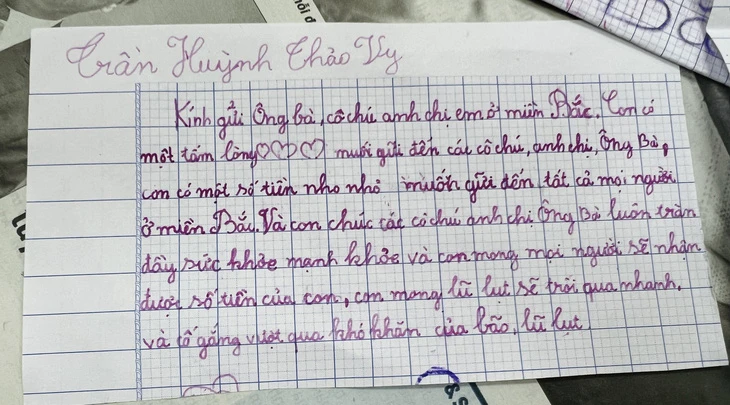 Trần Huỳnh Thảo Vy
Kính gửi Ông bà, cô chú anh chị em ở miền Bắc. Con có
một tấm lòng♡♡♡ muối gửi đến các cô chú, anh chị, Ông Bà,
con có một số tiền nho nhỏ muốn gửi đến tất cả mọi người
ở miền Bắc. Và con chúc các cô chú anh chị Ông Bà luôn tràn
đầy sức khỏe mạnh khỏe và con mong mọi người sẽ nhận
được số tiền của con, con mong lũ lụt sẽ trôi qua nhanh.
và cố gắng vượt qua khó khăn của bão, lũ lụt.